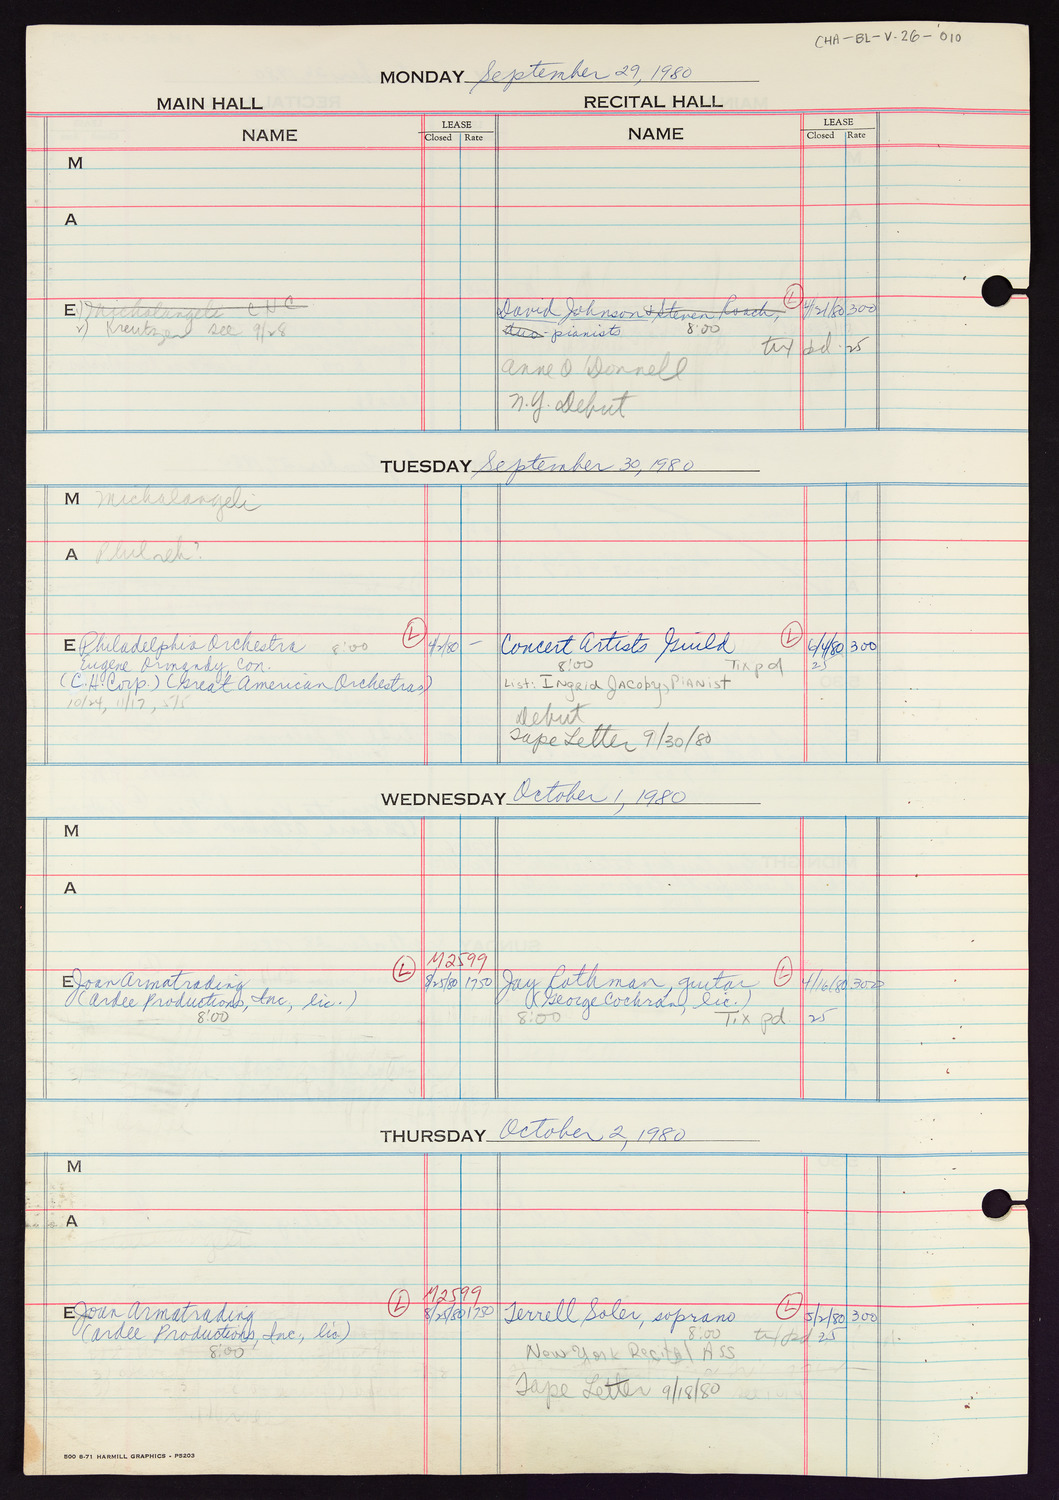 CHA-BL-V.26-010
MONDAY September 29, 1980
MAIN HALL RECITAL HALL
NAME LEASE Closed Rate NAME LEASE Closed Rate
M
A
E 1) Michalangeli CHC
2) Kreutzer see 9/28
David Johnson & Steven Roach, L 4/21/80 300
two pianists 8:00
tix pd. 25
Anne O'Donnell
N.Y. Debut
TUESDAY September 30, 1980
M Michalangeli
A Phil reh?
E Philadelphia Orchestra 8:00 L 4/2/80 —
Eugene Ormandy, Con.
(C.H. Corp.) (Great American Orchestras)
10/24, 11/17, 5/5
Concert Artists Guild L 6/4/80 300
8:00 Tix pd 25
List: Ingrid Jacoby, Pianist
Debut
Tape Letter 9/30/80
WEDNESDAY October 1, 1980
M
A
M2599
E Joan Armatrading L 8/25/80 1750
(Ardee Productions, Inc, lic.)
8:00
Jay Rothman, guitar L 4/16/80 300
(George Cochran, lic.)
8:00 Tix pd. 25
THURSDAY October 2, 1980
M
A
M2599
E Joan Armatrading L 8/25/80 1750
(Ardee Productions, Inc., lic)
8:00
Terrell Soler, soprano L 5/2/80 300
8:00 tix pd 25
New York Recital Ass
Tape Letter 9/18/80
500 6-71 HARMILL GRAPHICS - P5203